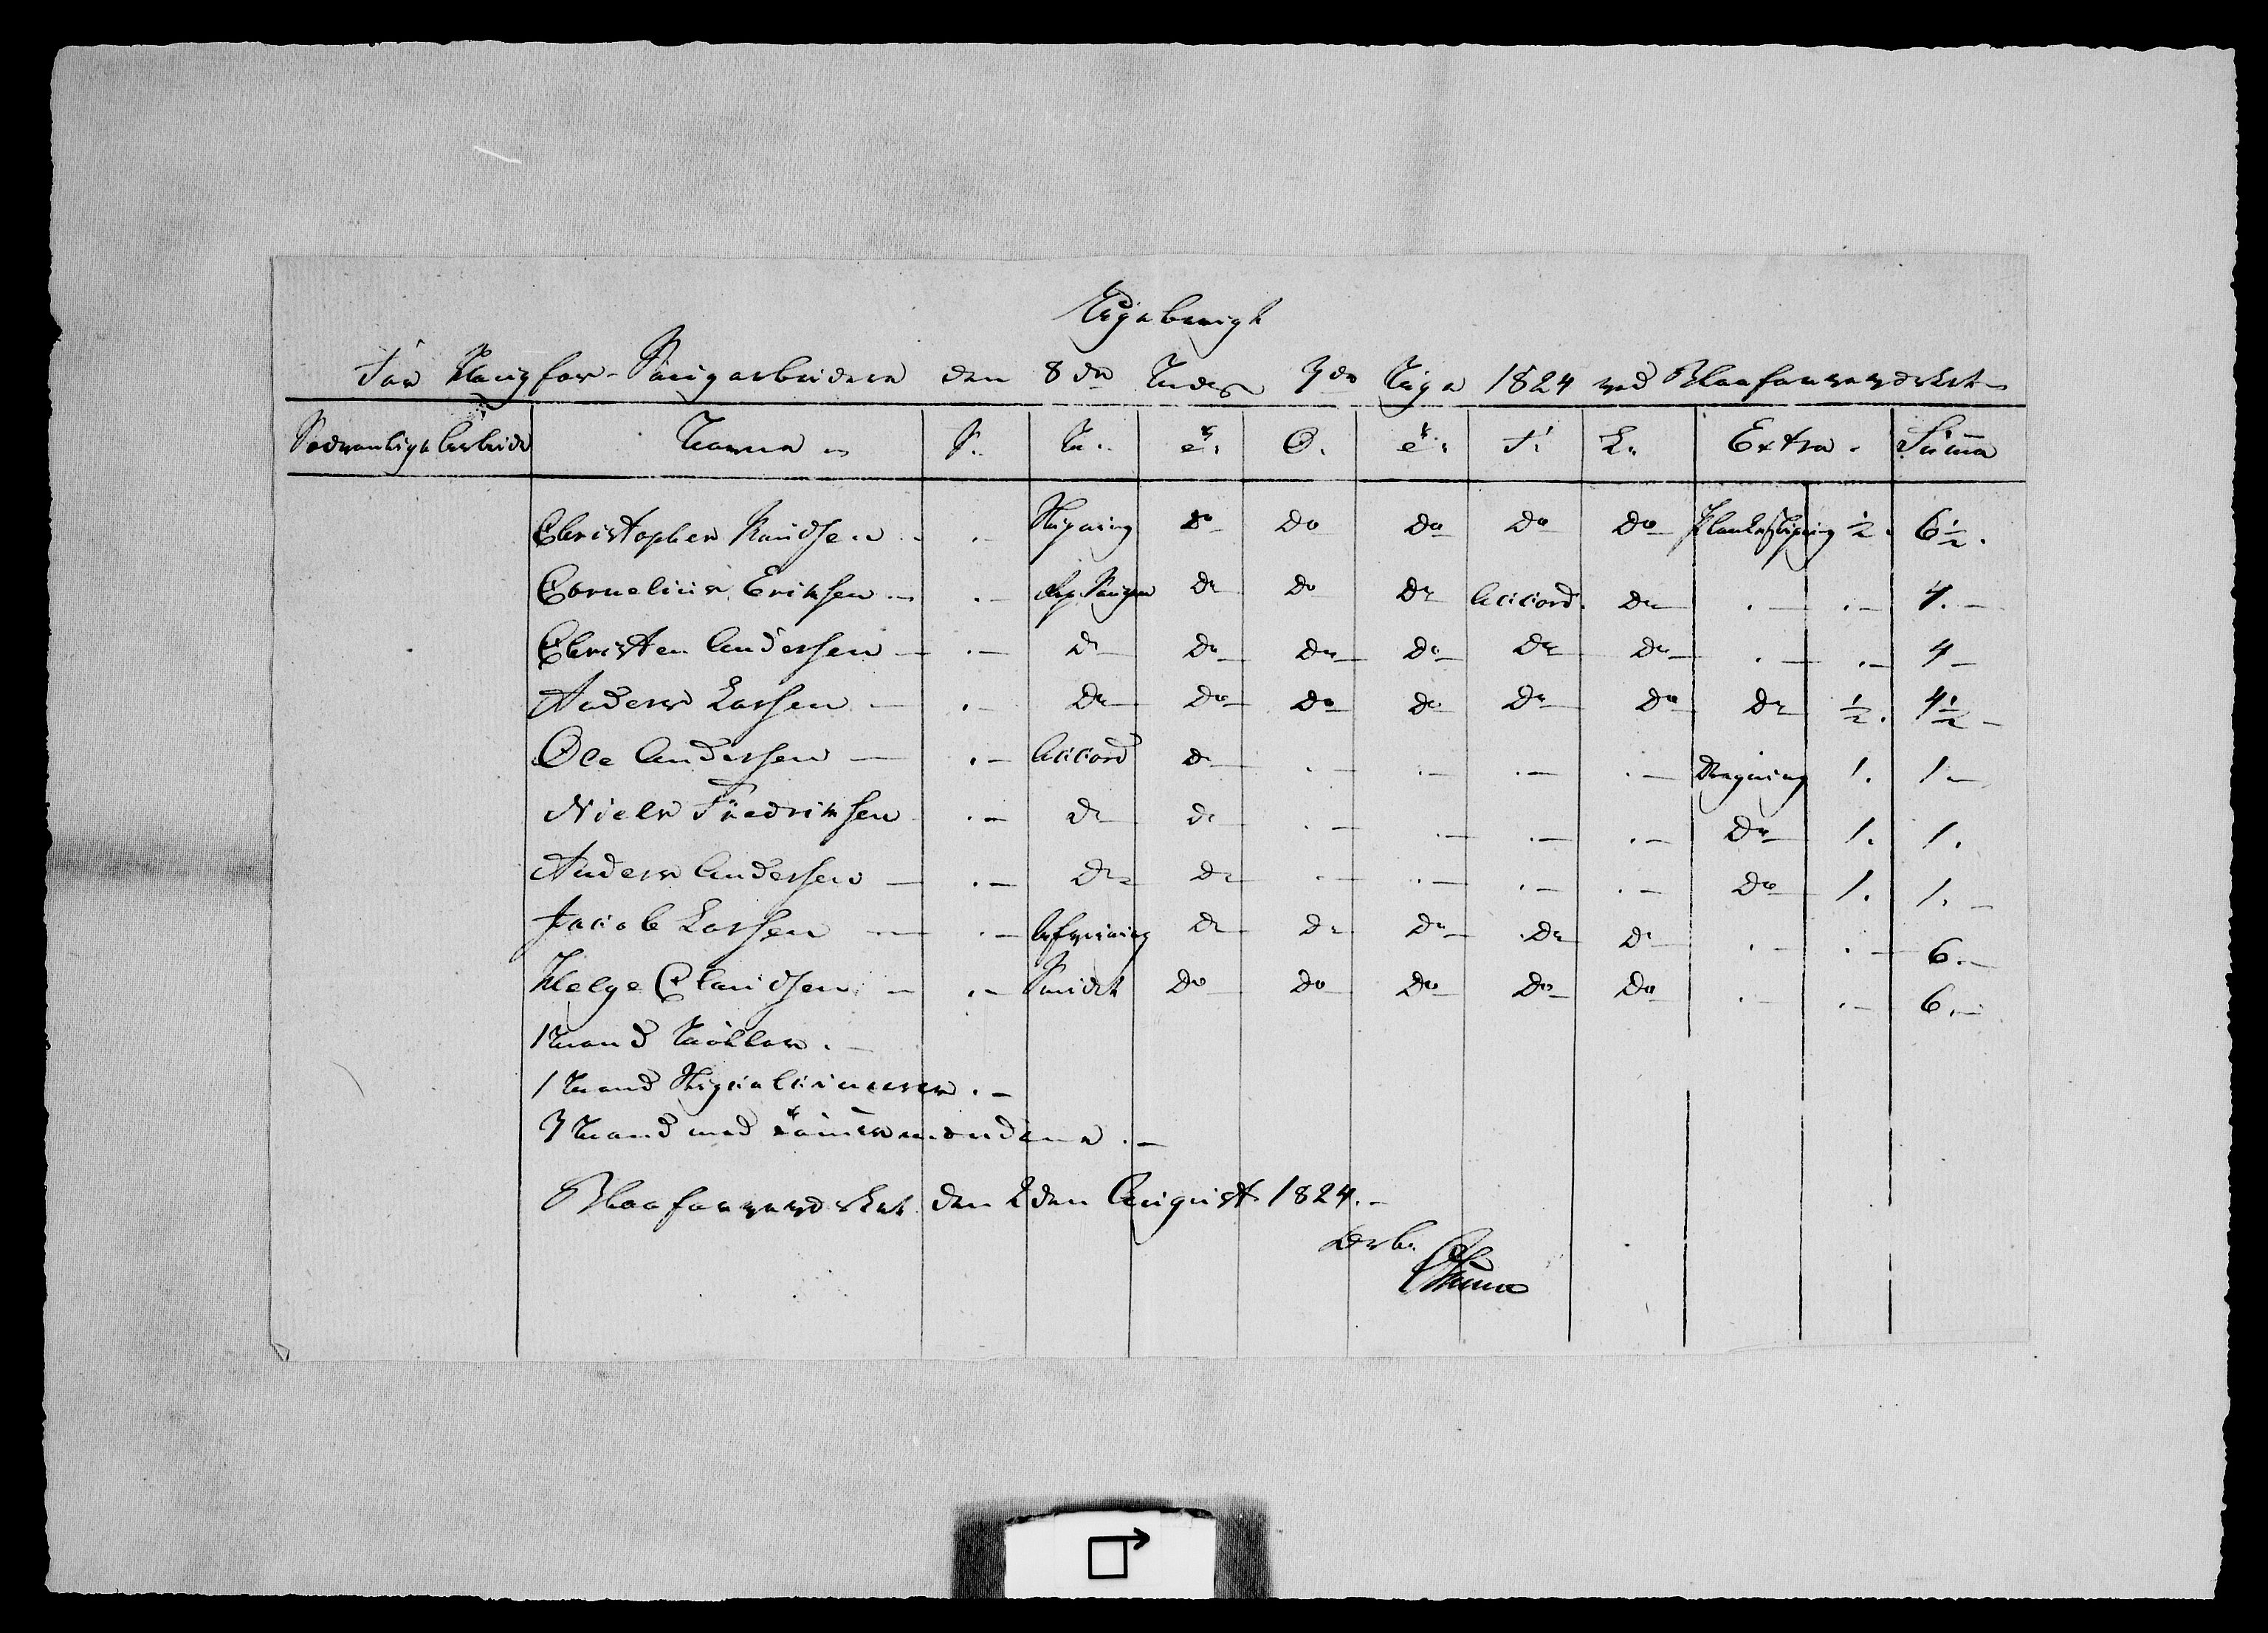 Ugeberigt
For Haugfos-Saugarbeidere den 8de Maaned 3de Uge 1824 ved Blaafarveværket
Sædvanlige Arbeide Navne S. M. T. O. T. F. L. Extra. Summa
Christopher Knudsen . Skipning do do do do do Plankeskipning ½. 6½.
Cornelius Eriksen . Rep. Saugen do do do Accord. do . . 4.
Christen Andersen . do do do do do do . . 4
Anders Larsen . do do do do do do do ½. 4½
Ole Andersen . Accord do . . . . 1. 1
Niels Fredriksen . do do . . . . do 1. 1.
Anders Andersen . do do . . . . do 1. 1.
Jacob Larsen . do do do do do . . 6.
Helge Claudsen . Smidt do do do do do . . 6.
1 Mand
1 Mand
3 Mand med Tømmermændene.
Blaafarveværket den 2den August 1824.